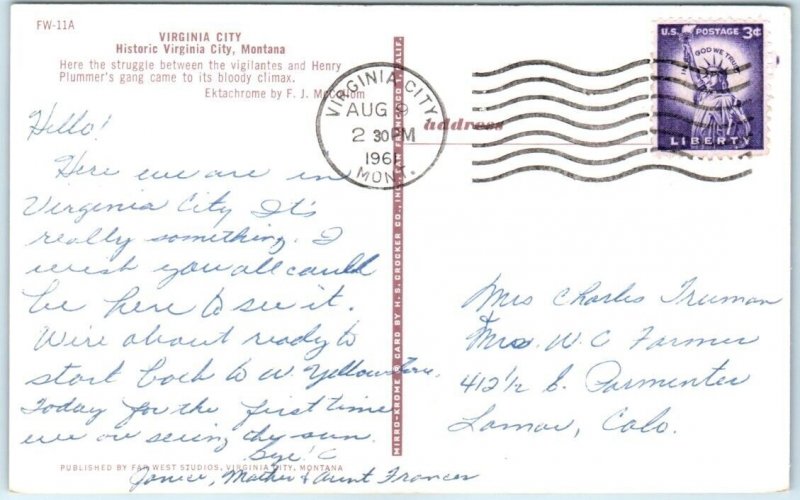 FW-11A
VIRGINIA CITY
Historic Virginia City, Montana
Here the struggle between the vigilantes and Henry
Plummer's gang came to its bloody climax.
Ektachrome by F. J. McCollom
Hello!
Here we are in
Virginia City It's
really something. I
wish you all could
be here to see it.
We're about ready to
start back to W. Yellowstone.
Today for the first time
we are seeing the sun.
Bye!
Janice, Mother & Aunt Frances
PUBLISHED BY FAR WEST STUDIOS, VIRGINIA CITY, MONTANA
MIRRO-KROME ® CARD BY H. S. CROCKER CO., INC., SAN FRANCISCO 1, CALIF.
VIRGINIA CITY,
AUG 9
2 30 PM
MONT.
address
U.S. POSTAGE 3¢
IN GOD WE TRUST
LIBERTY
Mrs Charles Truman
& Mrs. W. C. Farmer
412½ S. Parmenter
Lamar, Colo.